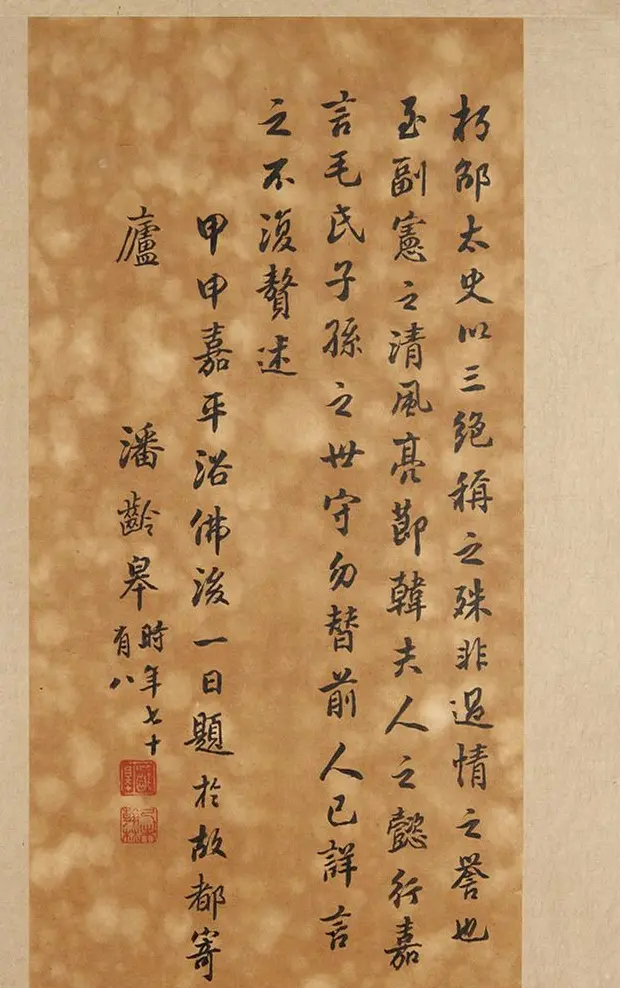 朽邵太史以三絶稱之殊非過情之譽也
至副憲之清風亮節韓夫人之懿行嘉
言毛氏子孫之世守勿替前人已詳言
之不復贅述
甲申嘉平浴佛後一日題於故都寄
廬
潘齡皋
時年七十
有八